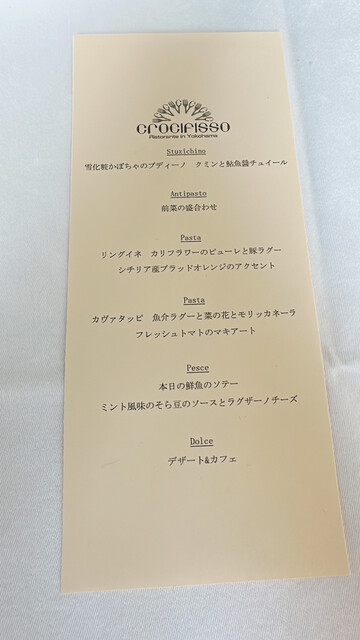 CROCIFISSO
Ristorante in Yokohama
Stuzichino
雪化粧かぼちゃのブディーノ　クミンと鮎魚醤チュイール
Antipasto
前菜の盛合わせ
Pasta
リングイネ　カリフラワーのピューレと豚ラグー
シチリア産ブラッドオレンジのアクセント
Pasta
カヴァタッピ　魚介ラグーと菜の花とモリッカネーラ
フレッシュトマトのマキアート
Pesce
本日の鮮魚のソテー
ミント風味のそら豆のソースとラグザーノチーズ
Dolce
デザート&カフェ